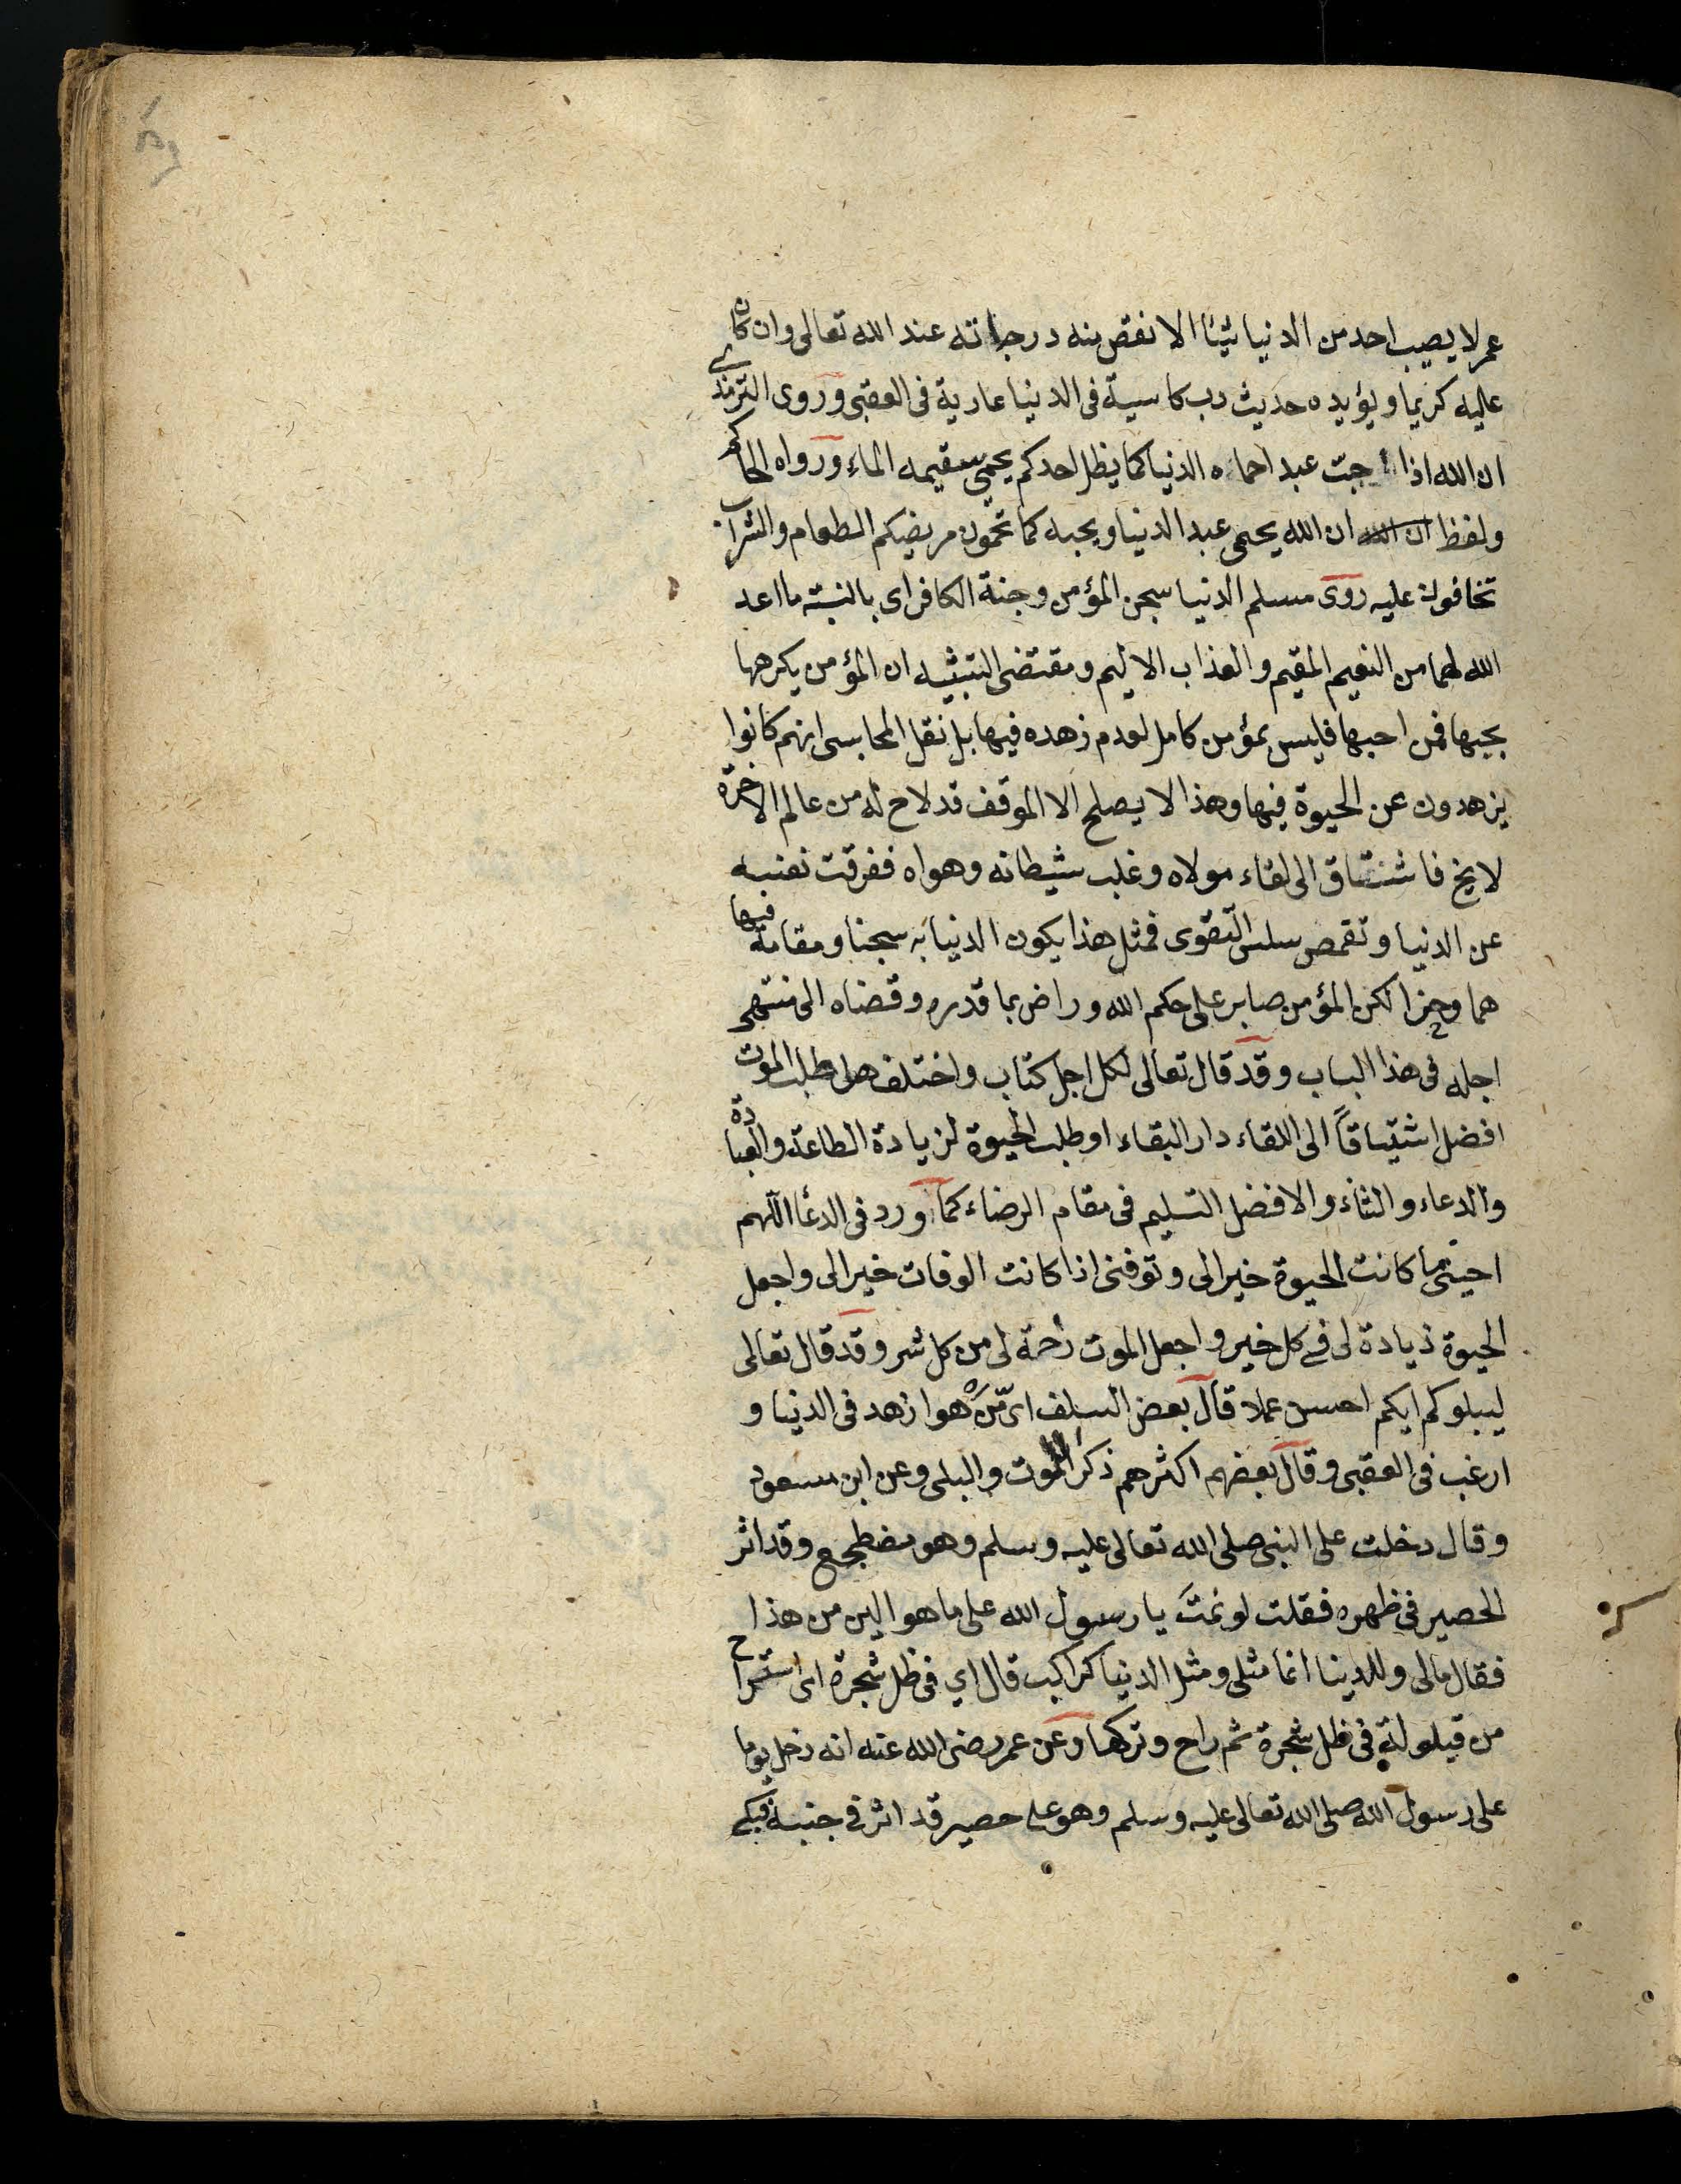 عمر لا يصيب احد من الدنيا شيئا الا نقص منه درجاته عند الله تعالى وان كان
عليه كريما ويؤيده حديث رب كاسية فى الدنيا عارية فى العقبى وروى الترمذى
ان الله اذا احبّ عبد احماه الدنيا كما يظل احدكم يحمى سقيمه الماء ورواه الحاكم
ولفظ ان الله ان الله يحمى عبد الدنيا ويحبه كما تحمون مريضكم الطعام والشراب
تخافون عليه روى مسلم الدنيا سجن المؤمن وجنة الكافر اى بالنسبة ما اعد
الله لهما من النعيم المقيم والعذاب الاليم ومقتضى التشبيه ان المؤمن يكرهها
يحبها فمن احبها فليس بمؤمن كامل لعدم زهده فيها بل نقل المحاسبى انهم كانوا
يزهدون عن الحيوة فيها وهذا لا يصلح الا الموقف قد لاح له من عالم الاخرة
فاشتاق الى لقاء مولاه وغلب شيطانه وهواه ففرقت نفسه
عن الدنيا وتقمص التقوى فمثل هذا يكون الدنيا به سجنا ومقامه فيها
هما وحزنا لكن المؤمن صابر على حكم الله وراض بما قدره وقضاه الى منتهى
اجله فى هذا الباب وقد قال تعالى لكل اجل كتاب واختلف هل طلب الموت
افضل اشتياقاً الى اللقاء دار البقاء او طلب الحيوة لزيادة الطاعة والعبادة
والدعاء والثناء والافضل التسليم فى مقام الرضاء كما ورد فى الدعا اللهم
احينى ما كانت الحيوة خيرا لى وتوفنى اذا كانت الوفات خيرا لى واجعل
الحيوة زيادة لى فى كل خير واجعل الموت رحمة لى من كل شر وقد قال تعالى
ليبلوكم ايكم احسن عملا قال بعض السلف اى هو ازهد فى الدنيا و
ارغب فى العقبى وقال بعضهم اكثرهم ذكر الموت والبلى وعن ابن مسعود
وقال دخلت على النبى صلى الله تعالى عليه وسلم وهو مضطجع وقد اثر
الحصير فى ظهره فقلت لو نمتَ يا رسول الله على ما هو الين من هذا
فقال مالى وللدنيا انما مثلى ومثل الدنيا كراكب قال اي فى ظل شجرة اى استراح
من قيلولة فى ظل شجرة ثم راح وتركها وعن عمر رضى الله عنه انه دخل يوما
على رسول الله صلى الله تعالى عليه وسلم وهو على حصير قد اثر فى جنبه فبكى